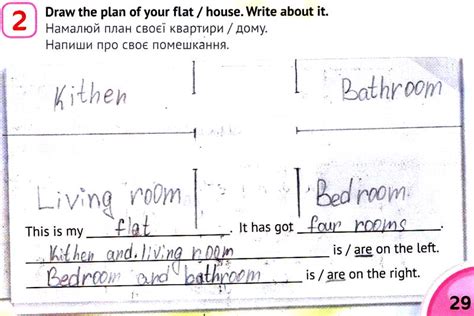 2 Draw the plan of your flat / house. Write about it.
Намалюй план своєї квартири / дому.
Напиши про своє помешкання.
Kithen Bathroom
Living room Bedroom
This is my flat. It has got four rooms.
Kithen and living room is / are on the left.
Bedroom and bathroom is / are on the right.
29